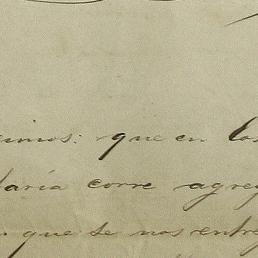 cimos: que en los
laría corre agreg
que se nos entre